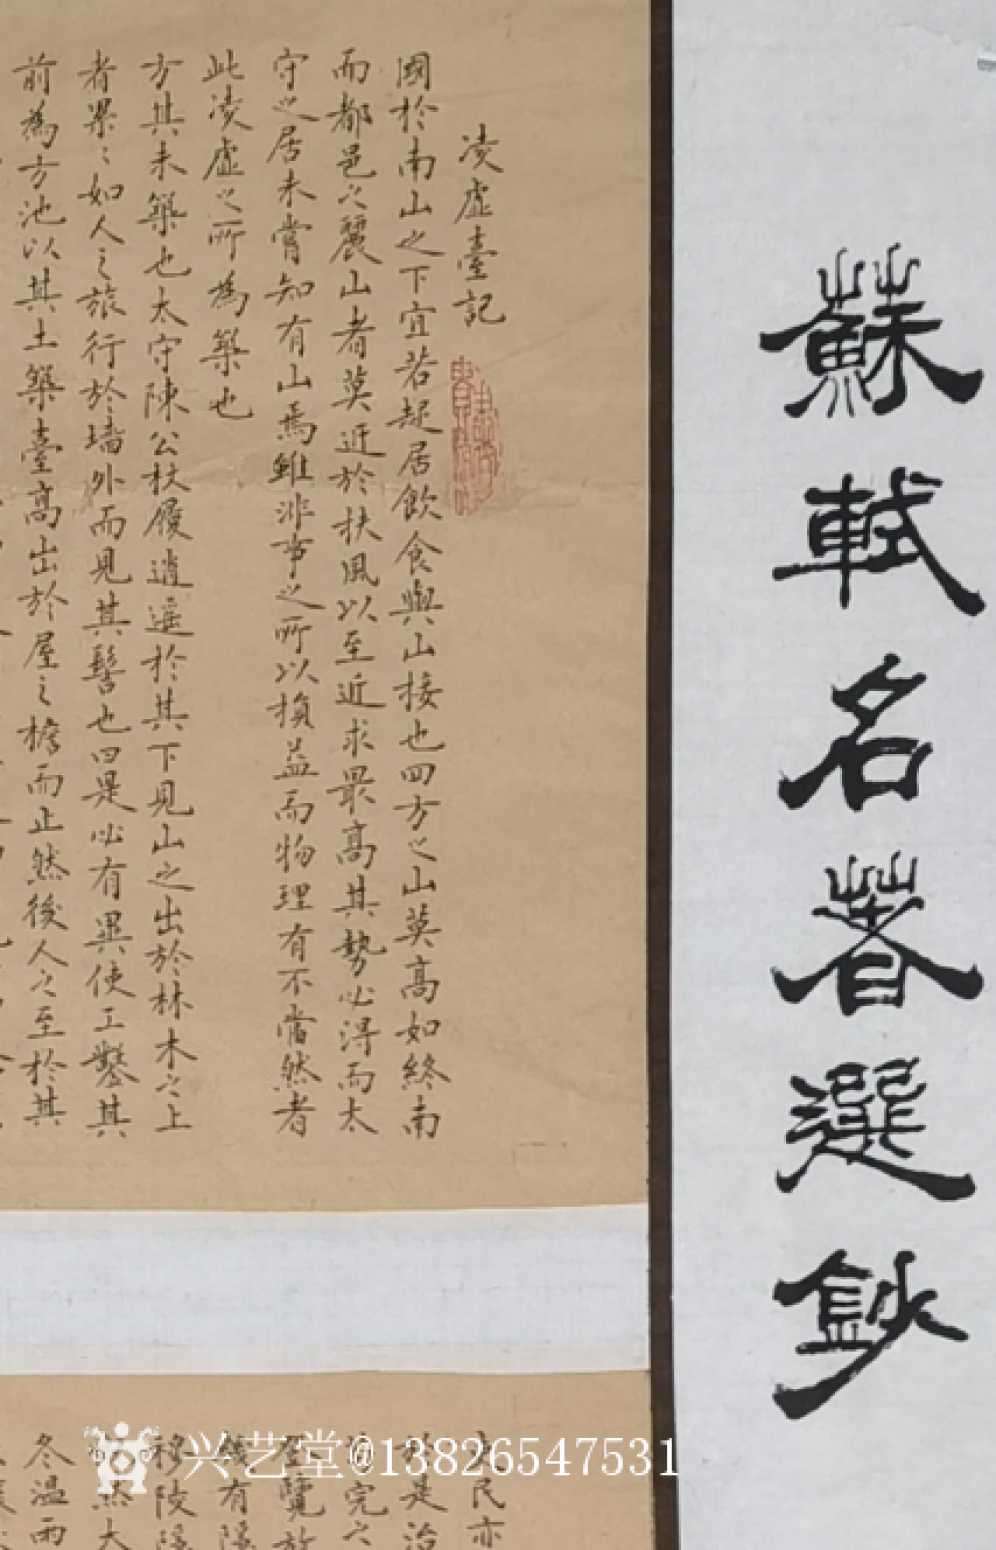 蘇軾名著選鈔
凌虛臺記
國於南山之下宜若起居飲食與山接也四方之山莫高如終南
而都邑之麗山者莫近於扶風以至近求最高其勢必得而太
守之居未嘗知有山焉雖非事之所以損益而物理有不當然者
此凌虛之所為築也
方其未築也太守陳公杖履逍遙於其下見山之出於林木之上
者纍々如人之旅行於墻外而見其髻也曰是必有異使工鑿其
前為方池以其土築臺高出於屋之檐而止然後人之至於其
夫民亦
於是治
完之
登覽放
有隱
穆陵隱
然大
冬溫雨
兴艺堂@13826547531